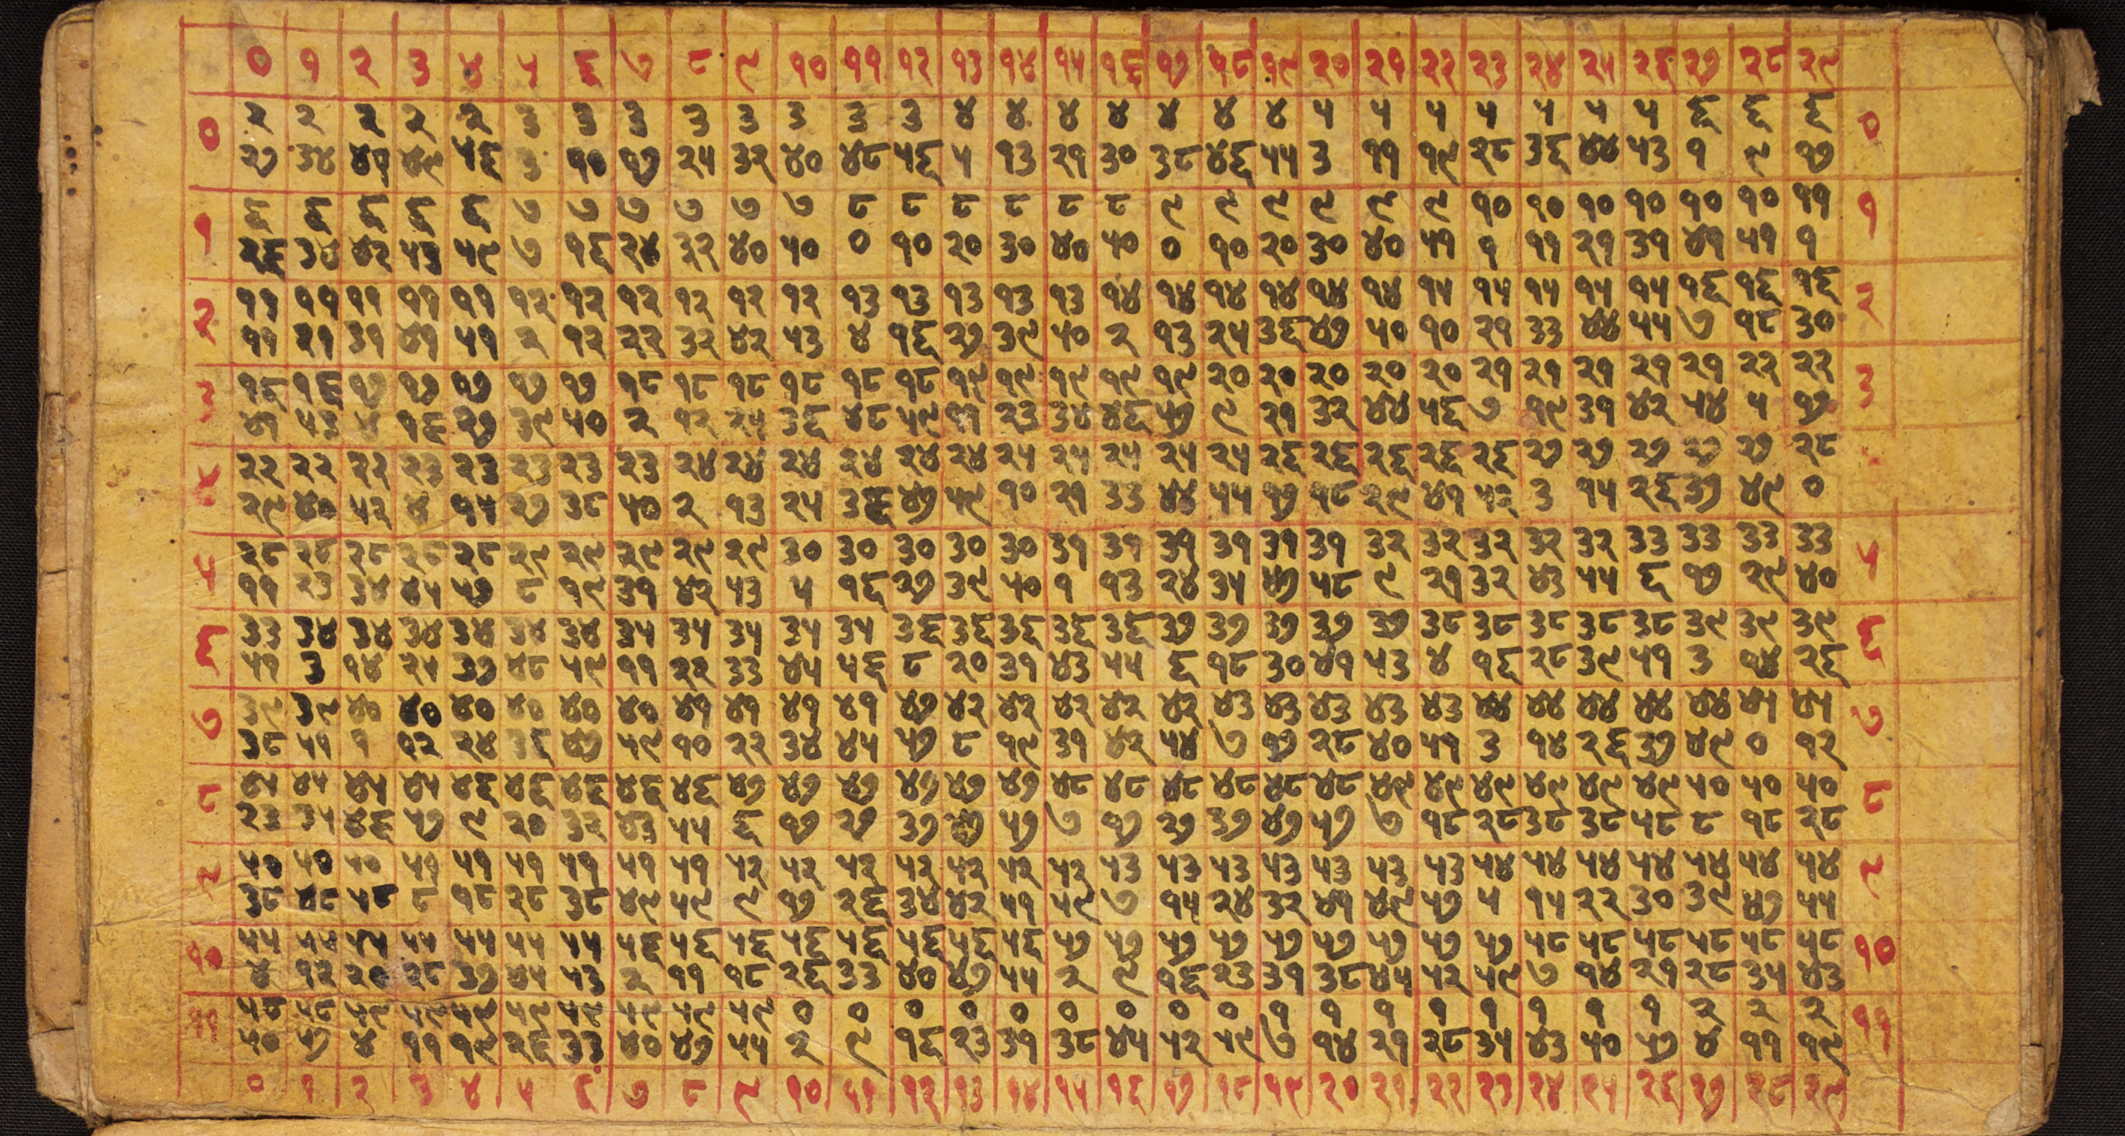 ० १ २ ३ ४ ५ ६ ७ ८ ९ १० ११ १२ १३ १४ १५ १६ १७ १८ १९ २० २१ २२ २३ २४ २५ २६ २७ २८ २९
० २ २ २ २ २ ३ ३ ३ ३ ३ ३ ३ ३ ४ ४ ४ ४ ४ ४ ४ ५ ५ ५ ५ ५ ५ ५ ६ ६ ६ ०
२७ ३४ ४१ ४९ ५६ ३ १० १७ २५ ३२ ४० ४८ ५६ ५ १३ २१ ३० ३८ ४६ ५५ ३ ११ १९ २८ ३६ ४४ ५३ १ ९ १७
१ ६ ६ ६ ६ ६ ७ ७ ७ ७ ७ ७ ८ ८ ८ ८ ८ ८ ९ ९ ९ ९ ९ ९ १० १० १० १० १० १० ११ १
२६ ३४ ४२ ५३ ५९ ७ १६ २४ ३२ ४० ५० ० १० २० ३० ४० ५० ० १० २० ३० ४० ५१ १ ११ २१ ३१ ४१ ५१ १
२ ११ ११ ११ ११ ११ १२ १२ १२ १२ १२ १२ १३ १३ १३ १३ १३ १४ १४ १४ १४ १४ १४ १५ १५ १५ १५ १५ १६ १६ १६ २
११ २१ ३१ ४१ ५१ २ १२ २२ ३२ ४२ ५३ ४ १६ २७ ३९ ५० २ १३ २५ ३६ ४७ ५० १० २१ ३३ ४४ ५५ ७ १८ ३०
३ १६ १६ १७ १७ १७ १७ १७ १८ १८ १८ १८ १८ १८ १९ १९ १९ १९ १९ २० २० २० २० २० २१ २१ २१ २१ २१ २२ २२ ३
४१ ५३ ४ १६ २७ ३९ ५० २ १२ २५ ३६ ४८ ५९ ११ २३ ३४ ४६ ५७ ९ २१ ३२ ४४ ५६ ७ १९ ३१ ४२ ५४ ५ १७
४ २२ २२ २२ २३ २३ २३ २३ २३ २४ २४ २४ २४ २४ २४ २५ २५ २५ २५ २५ २६ २६ २६ २६ २६ २७ २७ २७ २७ २७ २८
२९ ४० ५२ ४ १५ २७ ३८ ५० २ १३ २५ ३६ ४७ ५९ १० २१ ३३ ४४ ५५ १७ १८ २९ ४१ ५२ ३ १५ २६ ३७ ४९ ०
५ २८ २८ २८ २८ २८ २९ २९ २९ २९ २९ ३० ३० ३० ३० ३० ३१ ३१ ३१ ३१ ३१ ३१ ३२ ३२ ३२ ३२ ३२ ३३ ३३ ३३ ३३ ५
११ २३ ३४ ४५ ५७ ८ १९ ३१ ४२ ५३ ५ १६ २७ ३९ ५० १ १३ २४ ३५ ४७ ५८ ९ २१ ३२ ४३ ५५ ६ १७ २९ ४०
६ ३३ ३४ ३४ ३४ ३४ ३४ ३४ ३५ ३५ ३५ ३५ ३५ ३६ ३६ ३६ ३६ ३६ ३७ ३७ ३७ ३७ ३७ ३८ ३८ ३८ ३८ ३८ ३९ ३९ ३९ ६
५१ ३ १४ २५ ३७ ४८ ५९ ११ २२ ३३ ४५ ५६ ८ २० ३१ ४३ ५५ ६ १८ ३० ४१ ५३ ४ १६ २८ ३९ ५१ ३ १४ २६
७ ३९ ३९ ४० ४० ४० ४० ४० ४० ४१ ४१ ४१ ४१ ४७ ४२ ४२ ४२ ४२ ४२ ४३ ४३ ४३ ४३ ४३ ४४ ४४ ४४ ४४ ४४ ४५ ४५ ७
३८ ५१ १ १२ २४ ३६ ४७ ५९ १० २२ ३४ ४५ ५७ ८ १९ ३१ ४२ ५४ ७ १७ २८ ४० ५१ ३ १४ २६ ३७ ४९ ० १२
८ ४५ ४५ ४५ ४५ ४६ ४६ ४६ ४६ ४६ ४७ ४७ ४७ ४७ ४७ ४७ ४८ ४८ ४८ ४८ ४८ ४८ ४९ ४९ ४९ ४९ ४९ ४९ ५० ५० ५० ८
२३ ३५ ४६ ५७ ९ २० ३२ ४३ ५५ ६ १७ २७ ३७ ४७ ५७ ७ १७ २७ ३७ ४७ ५७ ७ १८ २८ ३८ ३८ ५८ ८ १८ २८
९ ५० ५० ५० ५१ ५१ ५१ ५१ ५१ ५१ ५२ ५२ ५२ ५२ ५२ ५२ ५२ ५३ ५३ ५३ ५३ ५३ ५३ ५३ ५४ ५४ ५४ ५४ ५४ ५४ ५४ ९
३८ ४८ ५८ ८ १८ २८ ३८ ४९ ५९ ९ १७ २६ ३४ ४२ ५१ ५९ ७ १५ २४ ३२ ४१ ४९ ५७ ५ १५ २२ ३० ३९ ४७ ५५
१० ५५ ५५ ५५ ५५ ५५ ५५ ५५ ५६ ५६ ५६ ५६ ५६ ५६ ५६ ५६ ५७ ५७ ५७ ५७ ५७ ५७ ५७ ५७ ५७ ५८ ५८ ५८ ५८ ५८ ५८ १०
४ १२ २० २८ ३७ ४५ ५३ २ ११ १८ २६ ३३ ४० ४७ ५५ २ ९ १६ २३ ३१ ३८ ४५ ५२ ५९ ७ १४ २१ २८ ३५ ४३
११ ५८ ५८ ५९ ५९ ५९ ५९ ५९ ५९ ५९ ५९ ० ० ० ० ० ० ० ० ० १ १ १ १ १ १ १ १ २ २ २ ११
५० ५७ ४ ११ १९ २६ ३३ ४० ४७ ५५ २ ९ १६ २३ ३१ ३८ ४५ ५२ ५९ ७ १४ २१ २८ ३५ ४३ ५० ५७ ४ ११ १९
० १ २ ३ ४ ५ ६ ७ ८ ९ १० ११ १२ १३ १४ १५ १६ १७ १८ १९ २० २१ २२ २३ २४ २५ २६ २७ २८ २९